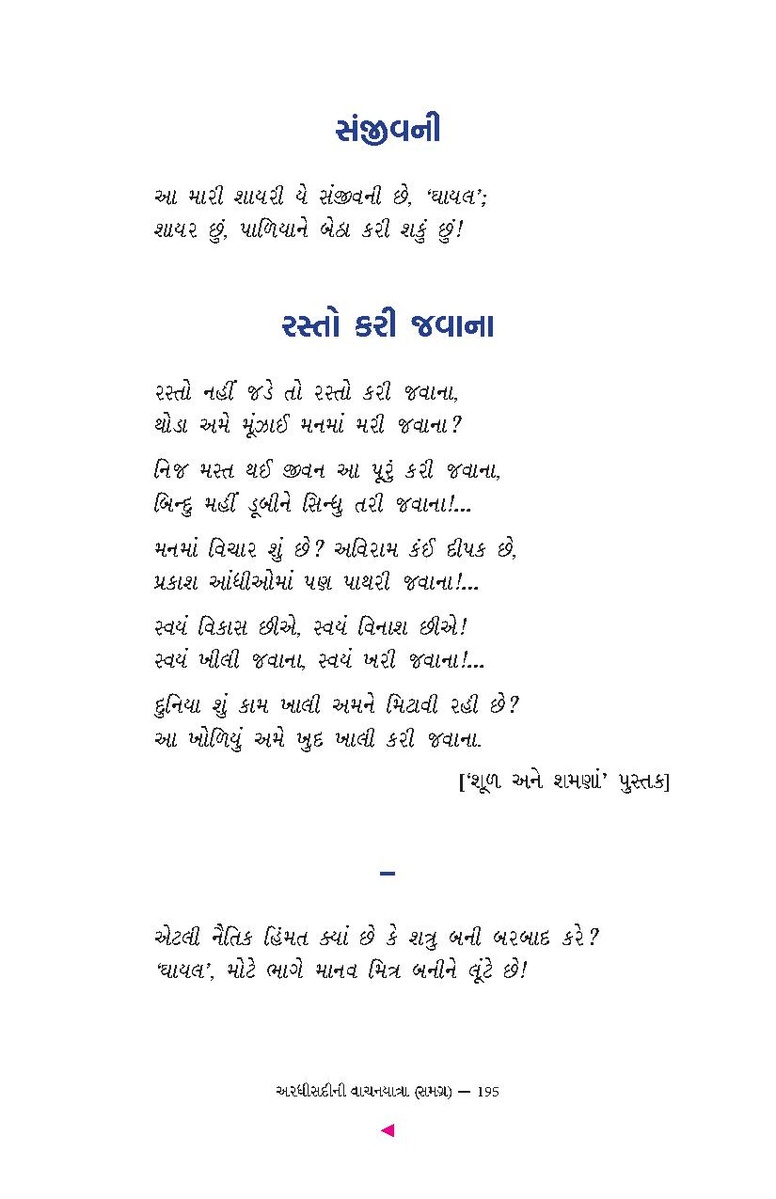 સંજીવની
આ મારી શાયરી યે સંજીવની છે, ‘ઘાયલ’;
શાયર છું, પાળિયાને બેઠા કરી શકું છું!
રસ્તો કરી જવાના
રસ્તો નહીં જડે તો રસ્તો કરી જવાના,
થોડા અમે મૂંઝાઈ મનમાં મરી જવાના?
નિજ મસ્ત થઈ જીવન આ પૂરું કરી જવાના,
બિન્દુ મહીં ડૂબીને સિન્ધુ તરી જવાના!...
મનમાં વિચાર શું છે? અવિરામ કંઈ દીપક છે,
પ્રકાશ આંધીઓમાં પણ પાથરી જવાના!...
સ્વયં વિકાસ છીએ, સ્વયં વિનાશ છીએ!
સ્વયં ખીલી જવાના, સ્વયં ખરી જવાના!...
દુનિયા શું કામ ખાલી અમને મિટાવી રહી છે?
આ ખોળિયું અમે ખુદ ખાલી કરી જવાના.
[‘શૂળ અને શમણાં’ પુસ્તક]
–
એટલી નૈતિક હિંમત ક્યાં છે કે શત્રુ બની બરબાદ કરે?
‘ઘાયલ’, મોટે ભાગે માનવ મિત્ર બનીને લૂંટે છે!
અરધીસદીની વાચનયાત્રા (સમગ્ર) — 195